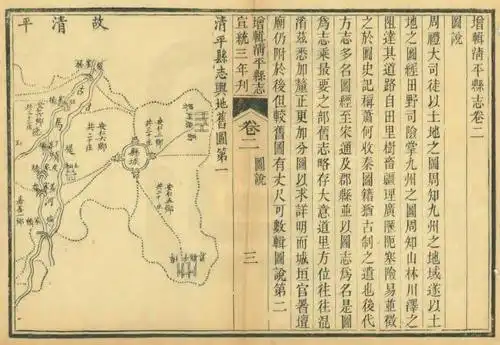 增輯清平縣志卷二
圖說
周禮大司徒以土地之圖周知九州之地域遂以土
地之圖經田野司險掌九州之圖周知山林川澤之
阻達其道路自田里樹畜疆理廣阨塞險易並徵
之於圖史記稱蕭何收秦圖籍猶古制之遺也後代
方志多名圖經至宋通及郡縣並以圖志為名是圖
為志乘最要之部舊志略存大意道里方位往往混
淆茲悉加釐正更加分圖以求詳明而城垣官署壇
廟仍附於後但較舊圖有丈尺可數輯圖說第二
增輯清平縣志
卷二
圖說
三
宣統三年刊
清平縣志輿地舊圖第一
故清平
縣城
馬頰河